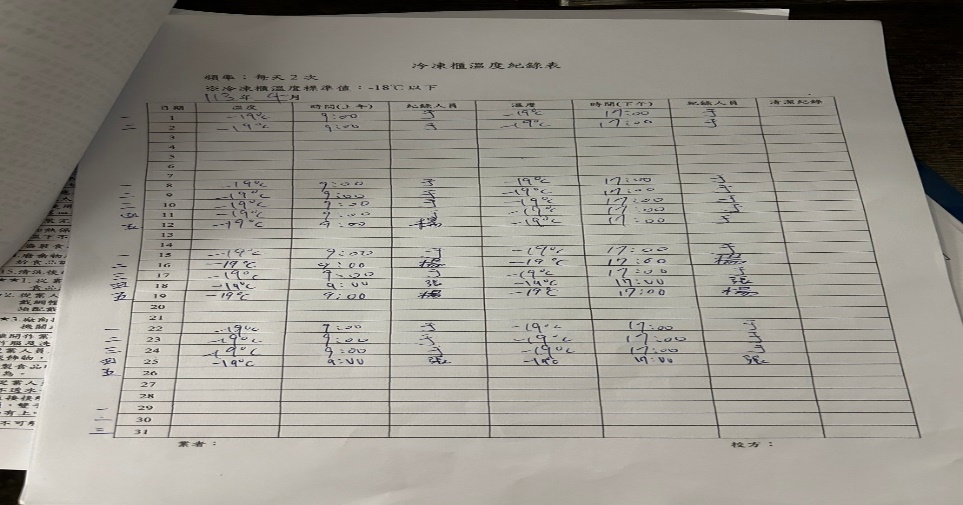 冷凍櫃溫度紀錄表
頻率：每天2次
※冷凍櫃溫度標準值：-18℃以下
113年4月
日期 溫度 時間(上午) 紀錄人員 溫度 時間(下午) 紀錄人員 清潔紀錄
一 1 -19℃ 9:00 于 -19℃ 17:00 于
二 2 -19℃ 9:00 于 -19℃ 17:00 于
3
4
5
6
7
一 8 -19℃ 9:00 于 -19℃ 17:00 于
二 9 -19℃ 9:00 于 -19℃ 17:00 于
三 10 -19℃ 9:00 于 -19℃ 17:00 于
四 11 -19℃ 9:00 于 -19℃ 17:00 于
五 12 -19℃ 9:00 楊 -19℃ 17:00 于
13
14
一 15 -19℃ 9:00 于 -19℃ 17:00 于
二 16 -19℃ 9:00 楊 -19℃ 17:00 楊
三 17 -19℃ 9:00 于 -19℃ 17:00 于
四 18 -19℃ 9:00 張 -19℃ 17:00 張
五 19 -19℃ 9:00 楊 -19℃ 17:00 楊
20
21
一 22 -19℃ 9:00 于 -19℃ 17:00 于
二 23 -19℃ 9:00 于 -19℃ 17:00 于
三 24 -19℃ 9:00 于 -19℃ 17:00 于
四 25 -19℃ 9:00 張 -19℃ 17:00 張
五 26
27
28
一 29
二 30
三 31
業者： 校方：